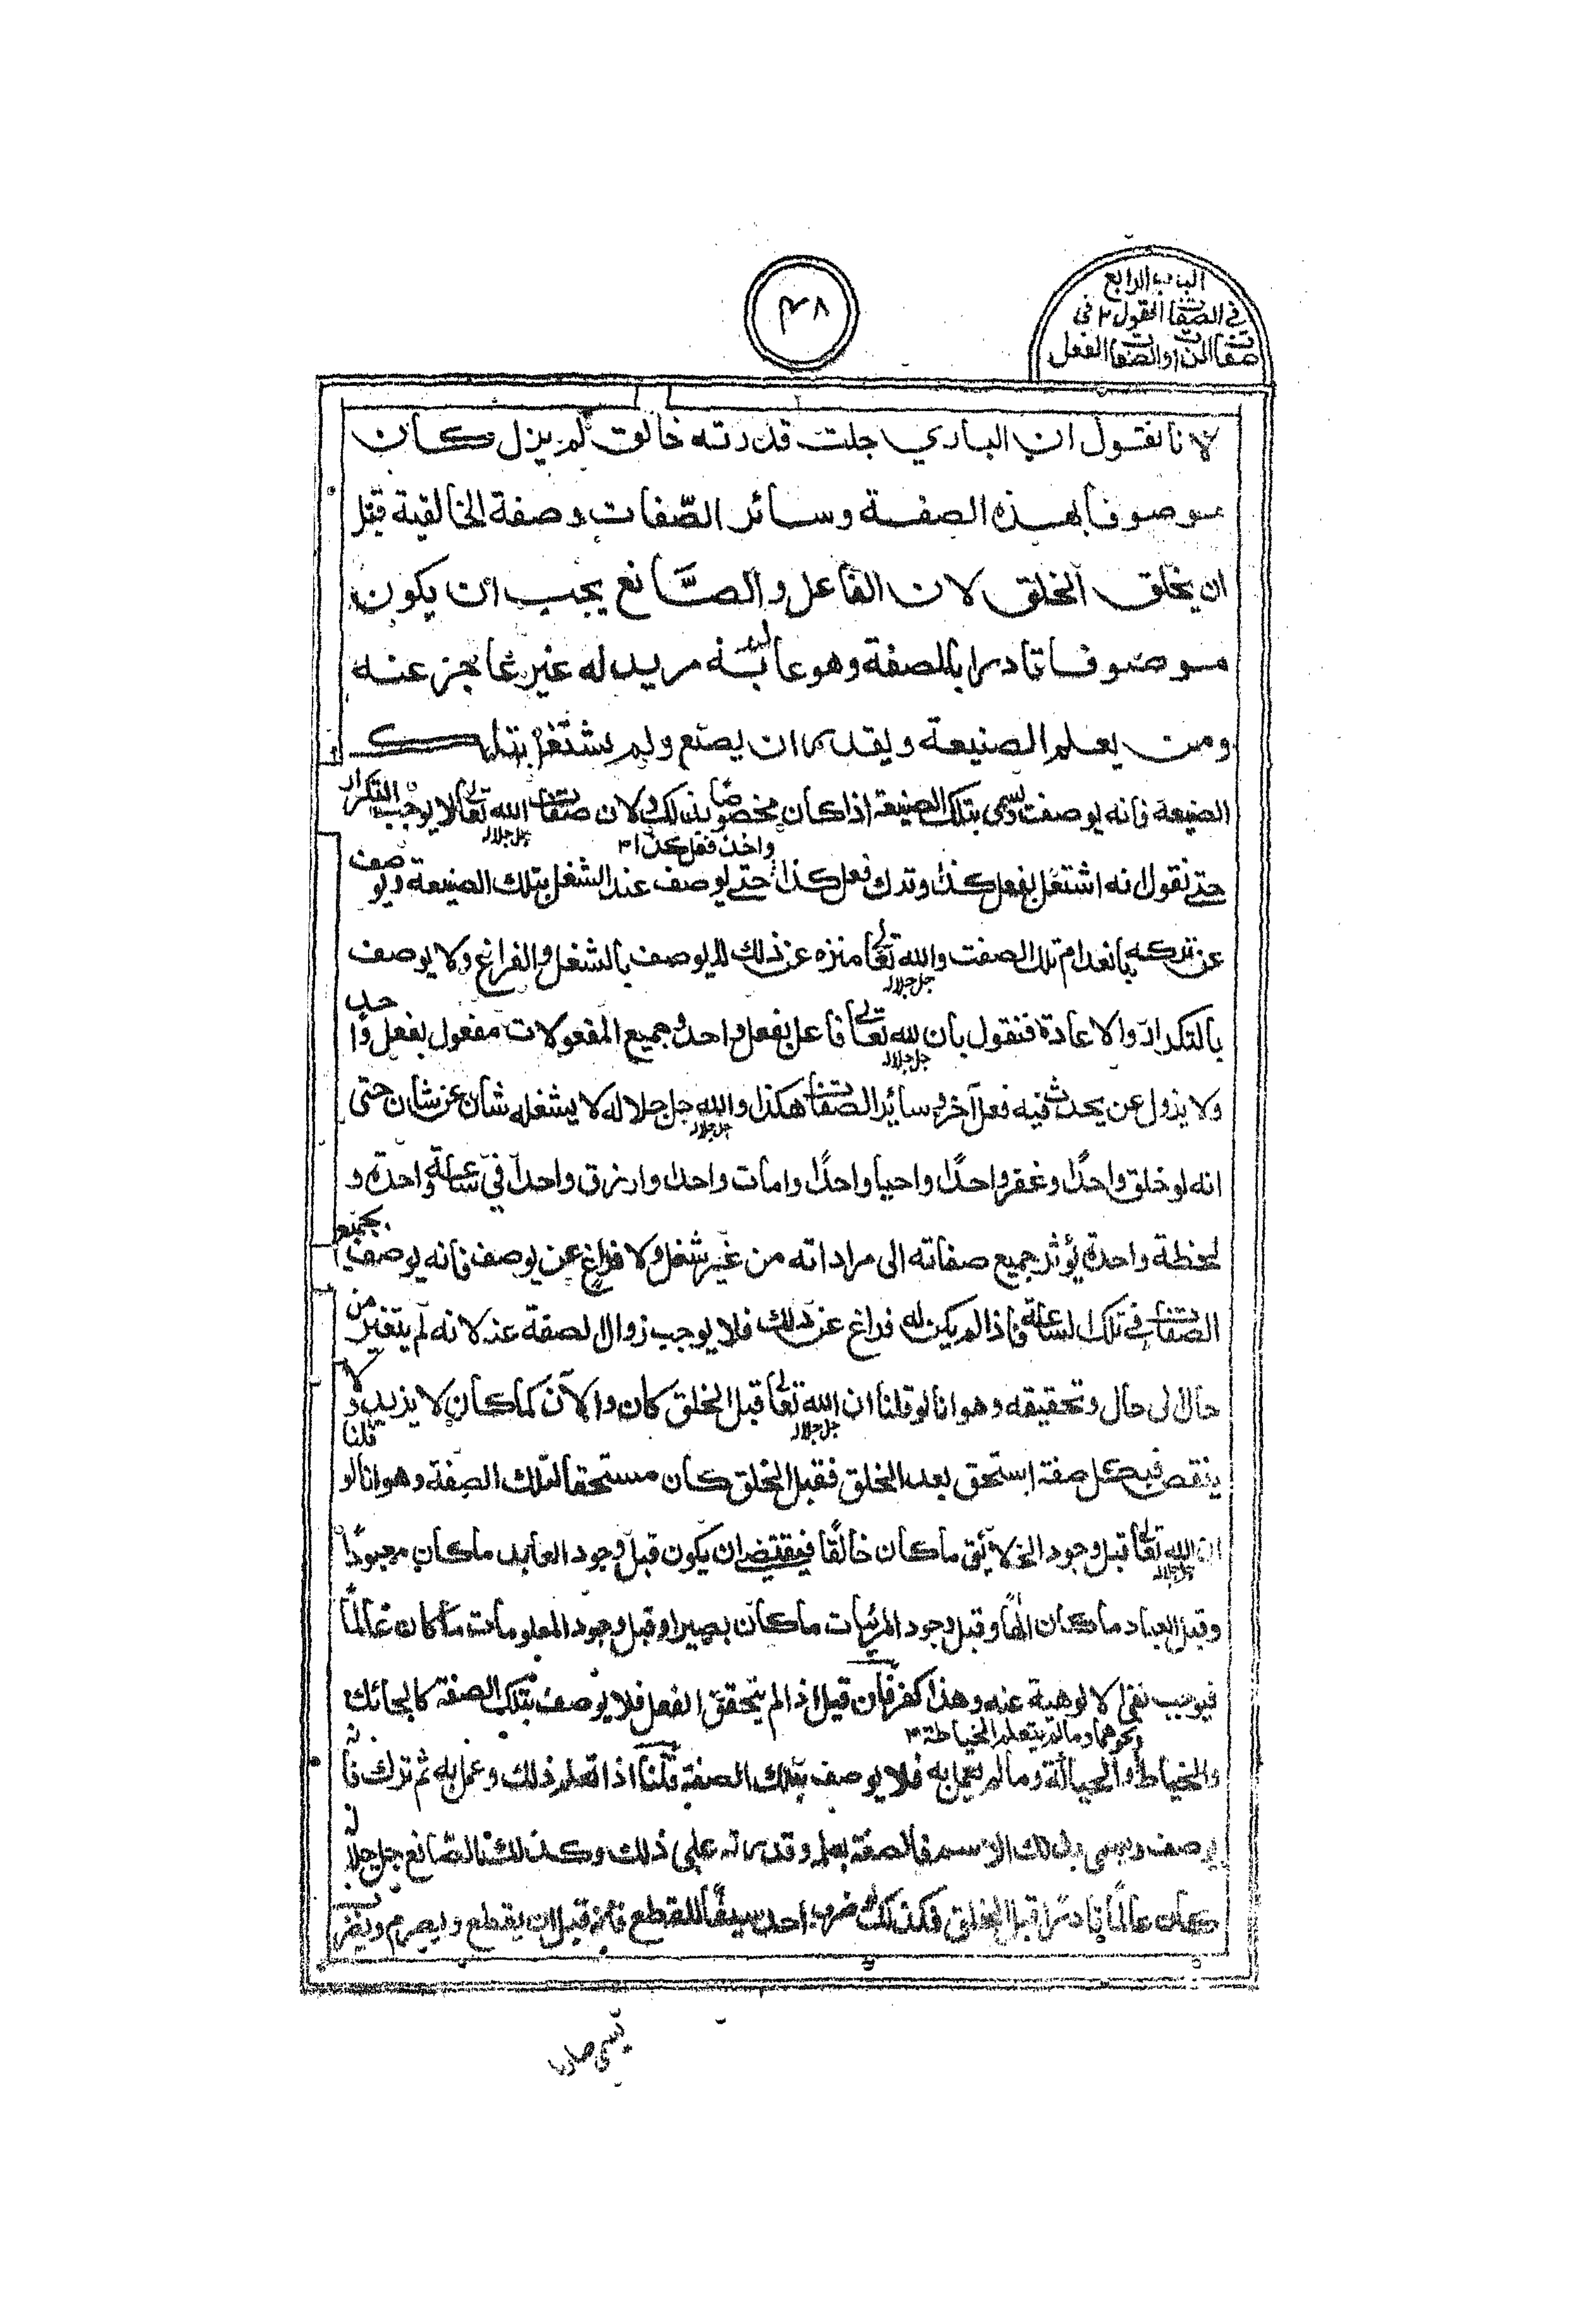 الباب الرابع
في الصفات القول ٣ في
صفات الذات والصفات الفعل
٤٨
لانا نقول ان الباري جلت قدرته خالق لم يزل وكان
موصوفا بهذه الصفة وسائر الصّفات وصفة الخالقية قبل
ان يخلق الخلق لان الفاعل والصَّانع يجب ان يكون
موصوفا قادرا بالصفة وهو عالم بانه مريد له غير عاجز عنه
ومن يعلم الصنيعة ويقدر ان يصنع ولم يشتغل بتلك
الصنيعة فانه يوصف ويسمى بتلك الصنيعة اذا كان مخصوصًا بذلك ولان صفات الله تعالى جل جلاله لا يوجب التكرار
حتى نقول انه اشتغل بفعل كذا وترك فعل كذا واخذ فعل كذا ٣ حتى يوصف عند الشغل بتلك الصنيعة ويوصف
عن تركه بانعدام تلك الصفت والله تعالى جل جلاله منزه عن ذلك لا يوصف بالشغل والفراغ ولا يوصف
بالتكرار والاعادة فنقول بان لله تعالى جل جلاله فاعل بفعل واحد وجميع المفعولات مفعول بفعل واحد
ولا يزول عن يحدث فيه فعل آخر وسائر الصفات هكذا والله جل جلاله جل جلاله لا يشغله شان عن شان حتى
انه لو خلق واحدًا وغفر واحدًا واحيا واحدًا وامات واحدا وارزق واحدا في ساعة واحدة و
لحظة واحدة يؤثر جميع صفاته الى مراداته من غير شغل ولا فراغ عن يوصف فانه يوصف بجميع
الصفات في تلك الساعة واذا لم يكن له فراغ عن ذلك فلا يوجب زوال الصفة عنه لانه لم يتغير من
حال الى حال وتحقيقه وهو انا لو قلنا ان الله تعالى جل جلاله قبل الخلق كان والآن كما كان لا يزيد ولا
ينقص فبكل صفة استحق بعد الخلق فقبل الخلق كان مستحقا لتلك الصفة وهو انا لو قلنا
ان الله تعالى جل جلاله قبل وجود الخلائق ما كان خالقًا فيقتضي ان يكون قبل وجود العابد ما كان معبودًا
وقبل العباد ما كان الهًا وقبل وجود المرئيات ما كان بصيرا وقبل وجود المعلومات ما كان عالمًا
فيوجب نفي الالوهية عنه وهذا كفر فان قيل اذا لم يتحقق الفعل فلا يوصف بتلك الصفة كالحائك
والخياط والحياكة ونحوهما وما لم يتعلم الخياطة ٣ وما لم يعمل به فلا يوصف بتلك الصفة قلنا اذا تعلم ذلك وعمل به ثم ترك فانه
يوصف ويسمى بذلك الاسم فالصفة بعلمه وقدرته على ذلك وكذلك الصّانع جل جلاله
كان عالمًا قادرًا قبل الخلق فكذلك ضرب احد سيفًا للقطع فانه قبل ان يقطع ويصرم ويفر
يسمى صارما